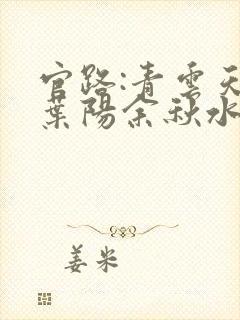 官路:青云天
葉陽余秋水
姜米